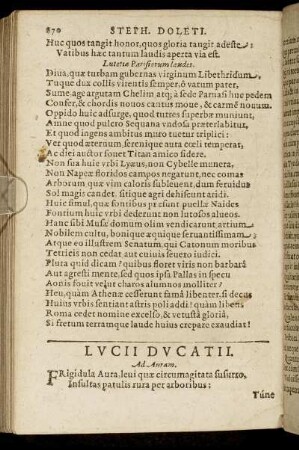 870 STEPH. DOLETI.
Huc quos tangit honor, quos gloria tangit adeste:
Vatibus hæc tantum laudis aperta via est.
Lutetiæ Parisiorum laudes.
Diua, quæ turbam gubernas virginum Libethridum,
Tuque dux collis virentis semper, ô vatum pater,
Sume age argutam Chelim atq; à sede Parnasi huc pedem
Confer, & chordis nouos cantus moue, & carmē nouum.
Oppido huic adsurge, quod tutles superbo muniunt,
Amne quod pulcro Sequana vndosa præterlabitur,
Et quod ingens ambitus muro tuetur triplici:
Ver quod æternum, serenique aura cœli temperat,
Ac diei auctor fouet Titan amico sidere.
Non sua huic vrbi Lyæus, non Cybelle munera,
Non Napeæ floridos campos negarunt, nec comas
Arborum quæ vim caloris subleuent, dum feruidus
Sol magis candet, sitique agri dehiscunt aridi.
Huic simul, quæ fontibus præsunt puellæ Naides
Fontium huic vrbi dederunt non lutosos alueos.
Hanc sibi Musæ domum olim vendicarunt artium
Nobilem cultu, bonique æquique seruantissimam
Atque eo illustrem Senatum, qui Catonum moribus
Tetricis non cedat aut cuiuis seuero iudici.
Pluta quid dicam? quibus floret viris non barbara
Aut agresti mente, sed quos ipsa Pallas in specu
Aonis fouit velut charos alumnos molliter?
Heu, quàm Athenæ cesserunt famâ libenter, si decus
Huius vrbis sentiant astris poli addi! quàm libens
Roma cedet nomine excelso, & vetusta gloria,
Si fretum terramque laude huius crepare exaudiat!
LVCII DVCATII.
Ad Auram.
FRigidula Aura, leui quæ circumagitata susurro,
Insultas patulis rura per arboribus:
Túne